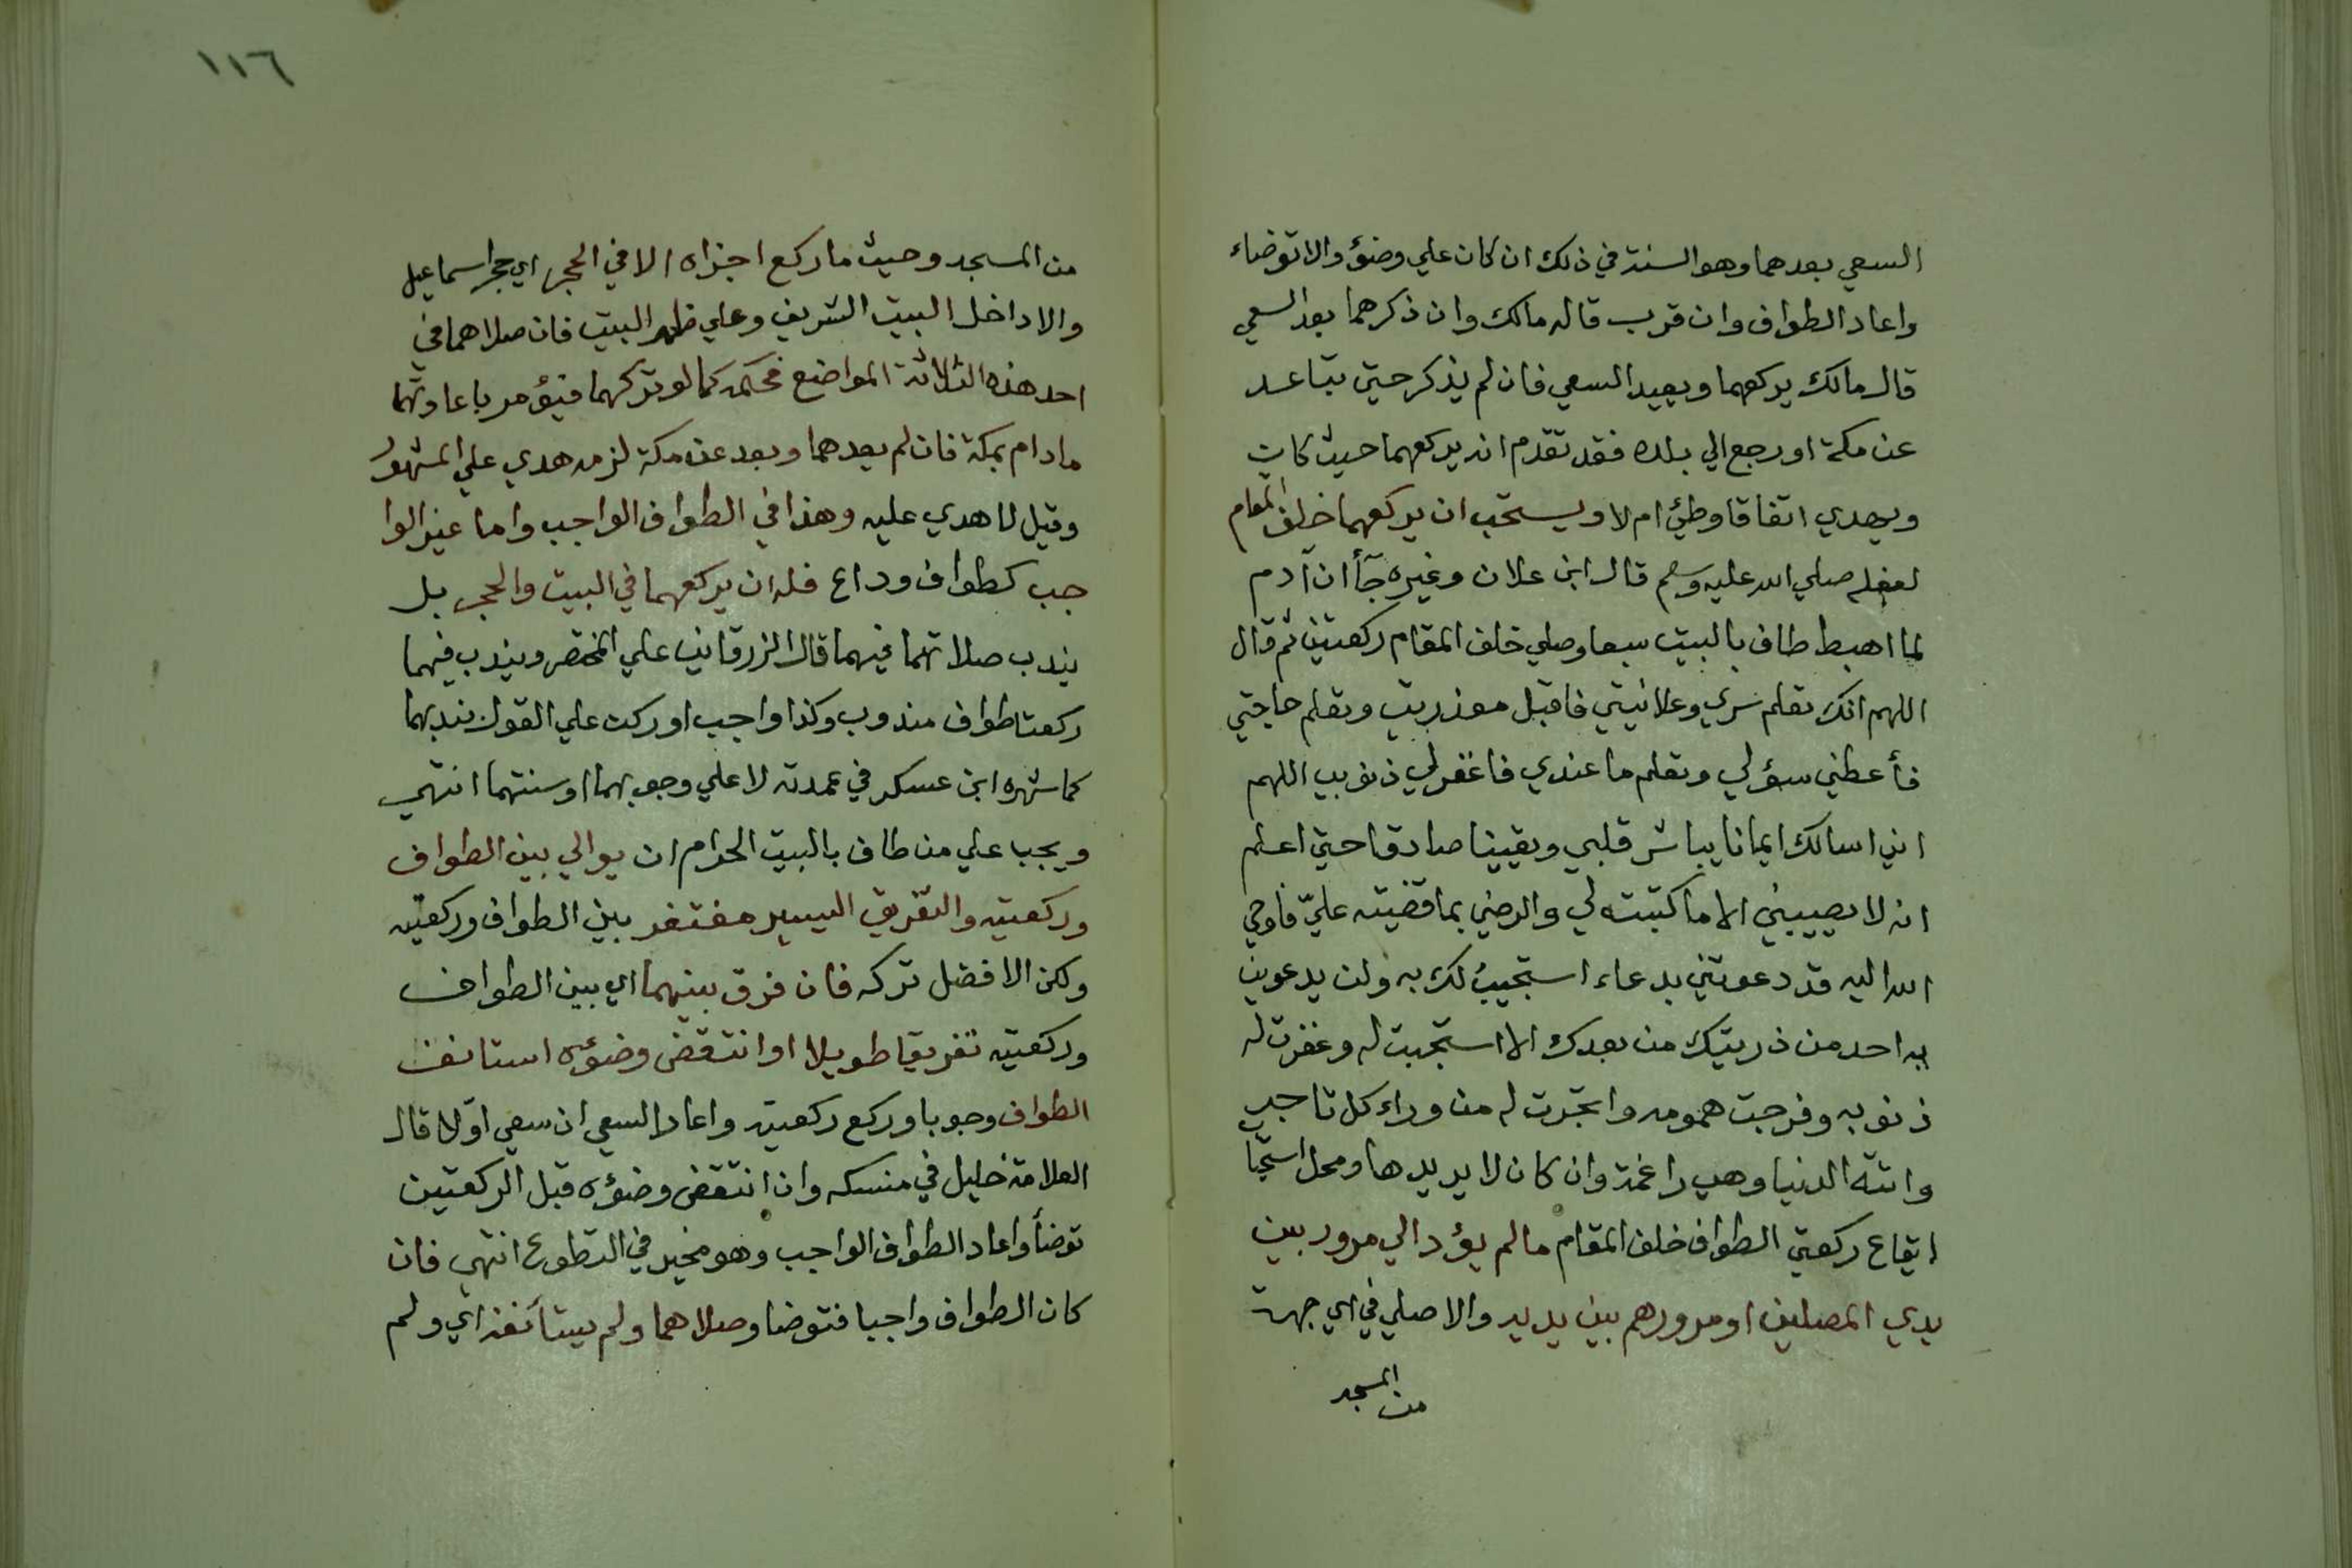 السعي بعدهما وهو السنة في ذلك ان كان علي وضؤ والا توضاء
واعاد الطواف وان قرب قاله مالك وان ذكرهما بعد السعي
قال مالك يركعهما ويعيد السعي فان لم يذكر حتي تباعد
عن مكة او رجع الي بلده فقد تقدم انه يركعهما حيث كان
ويهدي اتفاقا وطئ ام لا ويستحب ان يركعهما خلف المقام
لفعله صلي الله عليه وسلم قال ابن علان وغيره جآأ ان آدم
لما اهبط طاف بالبيت سبعا وصلي خلف المقام ركعتين ثم قال
اللهم انك تعلم سري وعلانيتي فاقبل معذرتي وتعلم حاجتي
فأعطني سؤلي وتعلم ما عندي فاغفر لي ذنوبي اللهم
اني اسالك ايمانا يباشر قلبي ويقينا صادقا حتي اعلم
انه لا يصيبني الا ما كتبته لي والرضي بما قضيته عليّ فاوحي
الله اليه قد دعوتني بدعاء استجيبُ لك به ولن يدعوني
به احد من ذريتك من بعدك الا استجبت له وغفرت له
ذنوبه وفرجت همومه واتجرت له من وراء كل تاجر
واتته الدنيا وهي راغمة وان كان لا يريدها ومحل استحبا
ايقاع ركعتي الطواف خلف المقام ما لم يؤد الي مرور بين
يدي المصلين او مرورهم بين يديه والا صلي في اي جهة
من المسجد
١١٦
من المسجد وحيث ما ركع اجزاه الا في الحجر اي حجر اسماعيل
والا داخل البيت الشريف وعلي ظهر البيت فان صلاهما في
احد هذه الثلاثة المواضع فحكمه كما لو تركهما فيؤمر باعادتهما
مادام بمكة فان لم يعدهما وبعد عن مكة لزمه هدي علي المشهور
وقيل لا هدي عليه وهذا في الطواف الواجب واما غير الوا
جب كطواف وداع فله ان يركعهما في البيت والحجر بل
يندب صلاتهما فيهما قال الزرقاني علي المختصر ويندب فيهما
ركعتا طواف مندوب وكذا واجب او ركن علي القول بندبهما
كما شهره ابن عسكر في عمدته لا علي وجوبهما او سنتهما انتهي
ويجب علي من طاف بالبيت الحرام ان يوالي بين الطواف
وركعتيه والتفريق اليسير مغتفر بين الطواف وركعتيه
ولكن الافضل تركه فان فرق بينهما اي بين الطواف
وركعتيه تفريقا طويلا او انتقض وضوءه استانف
الطواف وجوبا وركع ركعتيه واعاد السعي ان سعي اوّلا قال
العلامة خليل في منسكه وان انتقض وضؤه قبل الركعتين
توضأ واعاد الطواف الواجب وهو مخير في التطوع انتهي فان
كان الطواف واجبا فتوضا وصلاهما ولم يستأنفه اي ولم